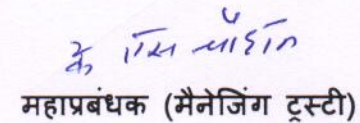 के एस
महाप्रबंधक (मैनेजिंग ट्रस्टी)